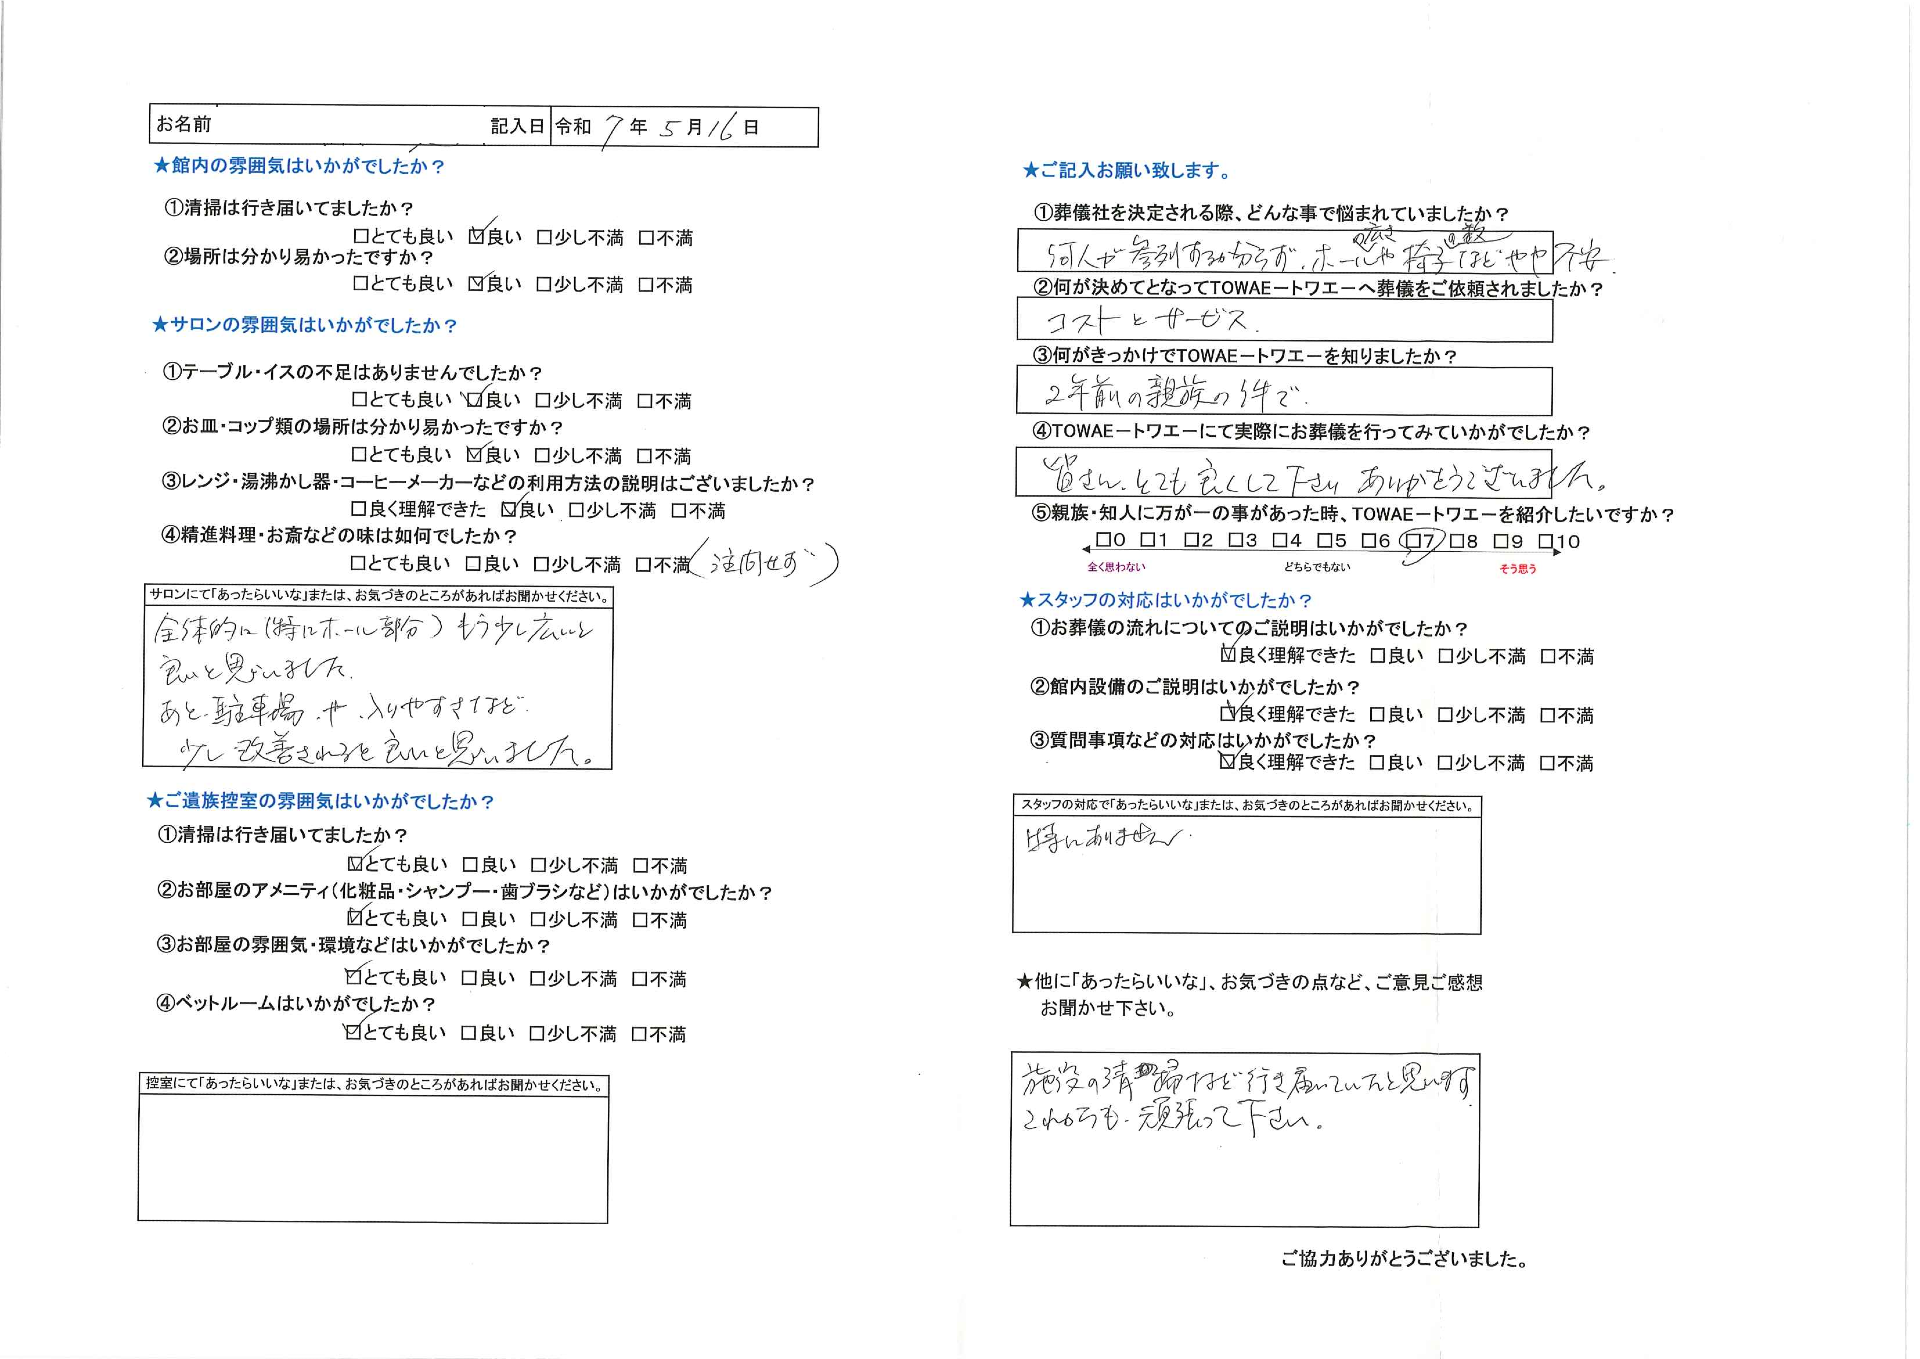 お名前 記入日 令和 7 年 5 月 16 日
★館内の雰囲気はいかがでしたか？
①清掃は行き届いてましたか？
□とても良い ☑良い □少し不満 □不満
②場所は分かり易かったですか？
□とても良い ☑良い □少し不満 □不満
★サロンの雰囲気はいかがでしたか？
①テーブル・イスの不足はありませんでしたか？
□とても良い ☑良い □少し不満 □不満
②お皿・コップ類の場所は分かり易かったですか？
□とても良い ☑良い □少し不満 □不満
③レンジ・湯沸かし器・コーヒーメーカーなどの利用方法の説明はございましたか？
□良く理解できた ☑良い □少し不満 □不満
④精進料理・お斎などの味は如何でしたか？
□とても良い □良い □少し不満 □不満（注向せず）
サロンにて「あったらいいな」または、お気づきのところがあればお聞かせください。
全体的に（特にホール部分）もう少し広いと
良いと思いました.
あと、駐車場.や.入りやすさなど.
少し改善されると良いと思いました。
★ご遺族控室の雰囲気はいかがでしたか？
①清掃は行き届いてましたか？
☑とても良い □良い □少し不満 □不満
②お部屋のアメニティ（化粧品・シャンプー・歯ブラシなど）はいかがでしたか？
☑とても良い □良い □少し不満 □不満
③お部屋の雰囲気・環境などはいかがでしたか？
☑とても良い □良い □少し不満 □不満
④ベットルームはいかがでしたか？
☑とても良い □良い □少し不満 □不満
控室にて「あったらいいな」または、お気づきのところがあればお聞かせください。
★ご記入お願い致します。
①葬儀社を決定される際、どんな事で悩まれていましたか？
何人が参列するか分らず、ホールの広さや椅子の数などやや不安.
②何が決めてとなってTOWAEートワエーへ葬儀をご依頼されましたか？
コストとサービス.
③何がきっかけでTOWAEートワエーを知りましたか？
2年前の親族の件で.
④TOWAEートワエーにて実際にお葬儀を行ってみていかがでしたか？
皆さん、とても良くして下さり ありがとうございました。
⑤親族・知人に万が一の事があった時、TOWAEートワエーを紹介したいですか？
□0 □1 □2 □3 □4 □5 □6 □7 □8 □9 □10
全く思わない どちらでもない そう思う
★スタッフの対応はいかがでしたか？
①お葬儀の流れについてのご説明はいかがでしたか？
☑良く理解できた □良い □少し不満 □不満
②館内設備のご説明はいかがでしたか？
☑良く理解できた □良い □少し不満 □不満
③質問事項などの対応はいかがでしたか？
☑良く理解できた □良い □少し不満 □不満
スタッフの対応で「あったらいいな」または、お気づきのところがあればお聞かせください。
特にありません.
★他に「あったらいいな」、お気づきの点など、ご意見ご感想
お聞かせ下さい。
施設の清掃など行き届いていたと思います
これからも.頑張って下さい。
ご協力ありがとうございました。